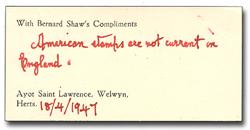 With Bernard Shaw's Compliments
American stamps are not current in
England.
Ayot Saint Lawrence, Welwyn,
Herts. 18/4/1947